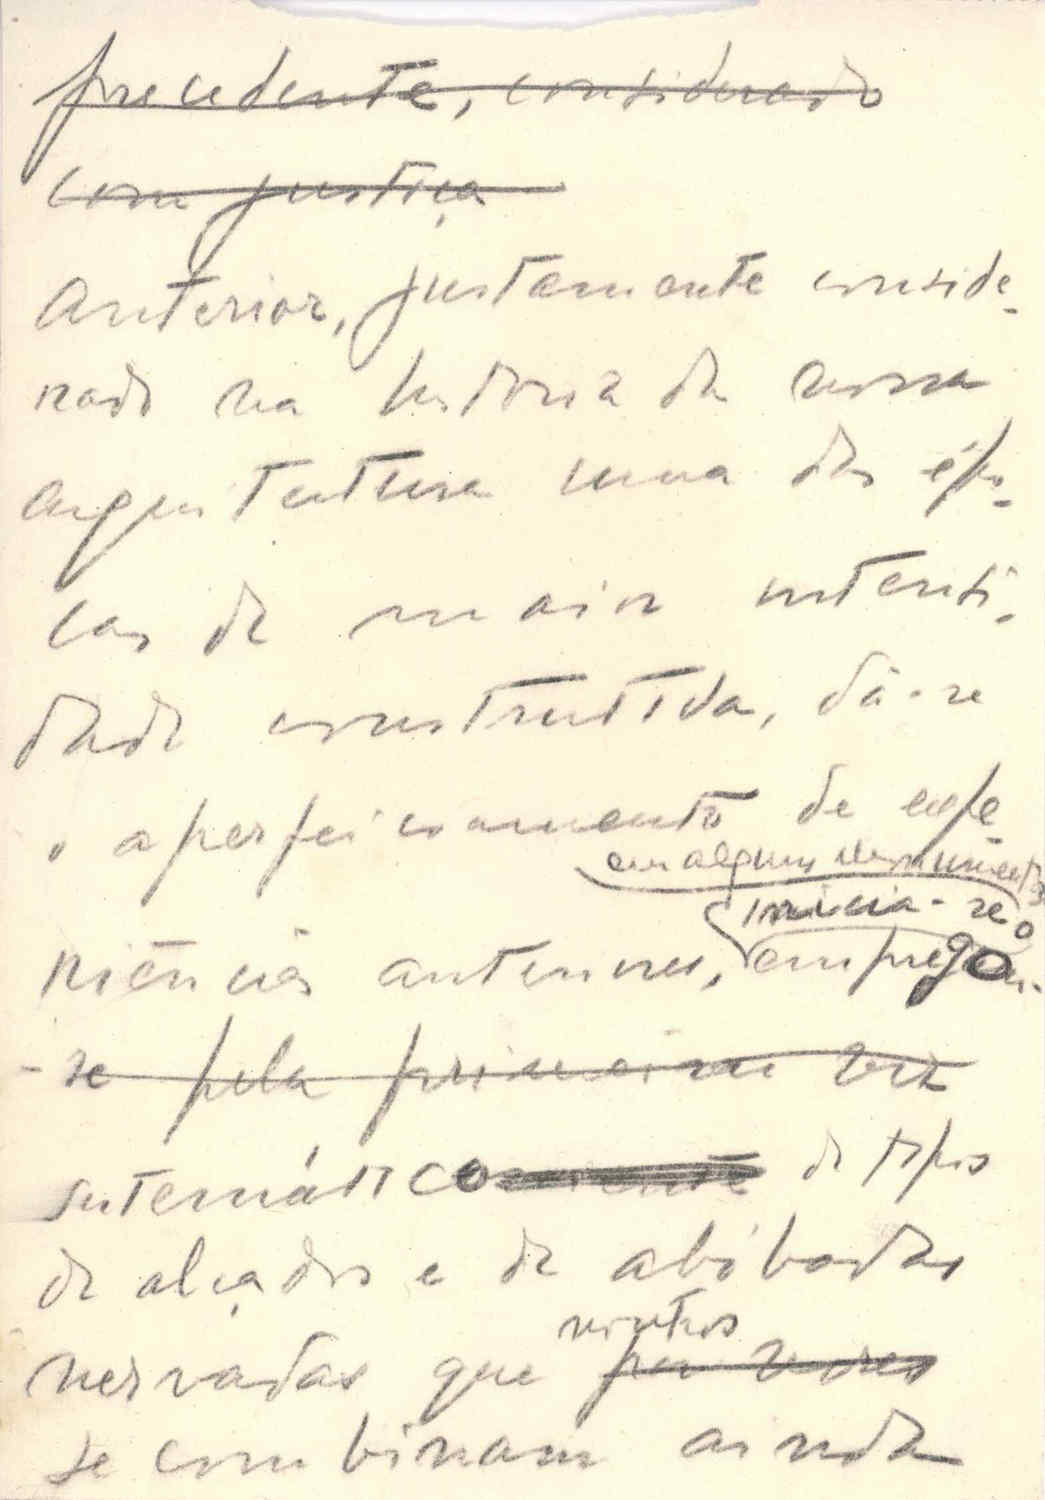 precedente, considerado
com justiça
Anterior, justamente conside-
rado na historia da nossa
arquitectura uma das épo-
cas de maior intensi-
dade construtiva, dá-se
o aperfeicoamento de expe-
em alguns monumentos
inicia-se o
riências anteriores, empregam-
-se pela primeira vez
sistemático de tipos
de alçados e de abóbadas
nervadas que noutros
por vezes
se combinam ainda